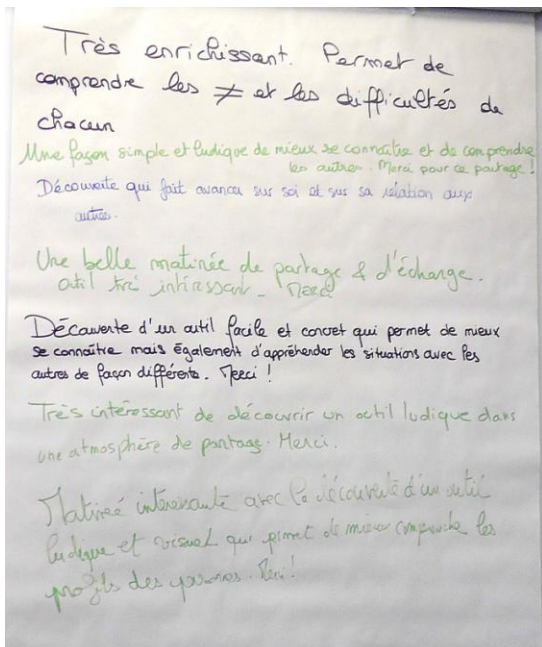 Très enrichissant. Permet de
comprendre les ≠ et les difficultés de
chacun
Une façon simple et ludique de mieux se connaître et de comprendre
les autres. Merci pour ce partage !
Découverte qui fait avancer sur soi et sur sa relation aux
autres.
Une belle matinée de partage & d'échange.
outil très intéressant _ Merci
Découverte d'un outil facile et concret qui permet de mieux
se connaître mais également d'appréhender les situations avec les
autres de façon différente. Merci !
Très intéressant de découvrir un outil ludique dans
une atmosphère de partage. Merci.
Matinée intéressante avec la découverte d'un outil
ludique et visuel qui permet de mieux comprendre les
profils des personnes. Merci !